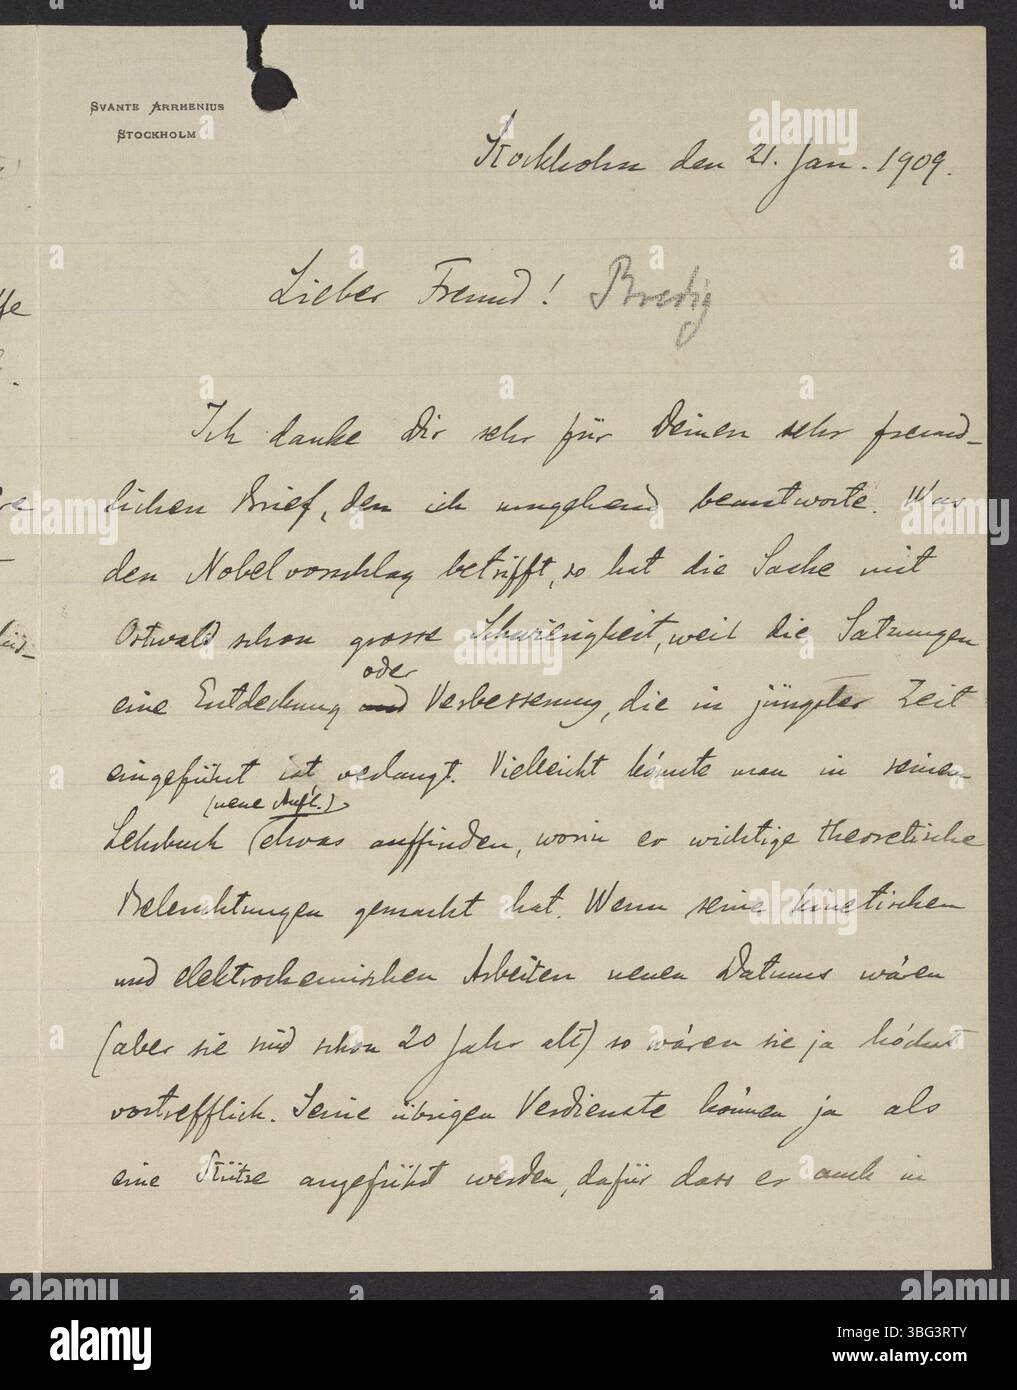 SVANTE ARRHENIUS
STOCKHOLM
Stockholm den 21. Jan. 1909.
Lieber Freund! Bredig
Ich danke Dir sehr für Deinen sehr freund-
lichen Brief, den ich umgehend beantworte. Was
den Nobelvorschlag betrifft, so hat die Sache mit
Ostwald schon grosse Schwierigkeit, weil die Satzungen
oder
eine Entdeckung und Verbesserung, die in jüngster Zeit
eingeführt ist verlangt. Vielleicht könnte man in seinem
(neue Aufl.)
Lehrbuch etwas auffinden, worin er wichtige theoretische
Beleuchtungen gemacht hat. Wenn seine kinetischen
und elektrochemischen Arbeiten neuen Datums wären
(aber sie sind schon 20 Jahr alt) so wären sie ja höchst
vortrefflich. Seine übrigen Verdienste können ja als
eine Stütze angeführt werden, dafür dass er auch in
alamy
Image ID: 3BG3RTY
www.alamy.com